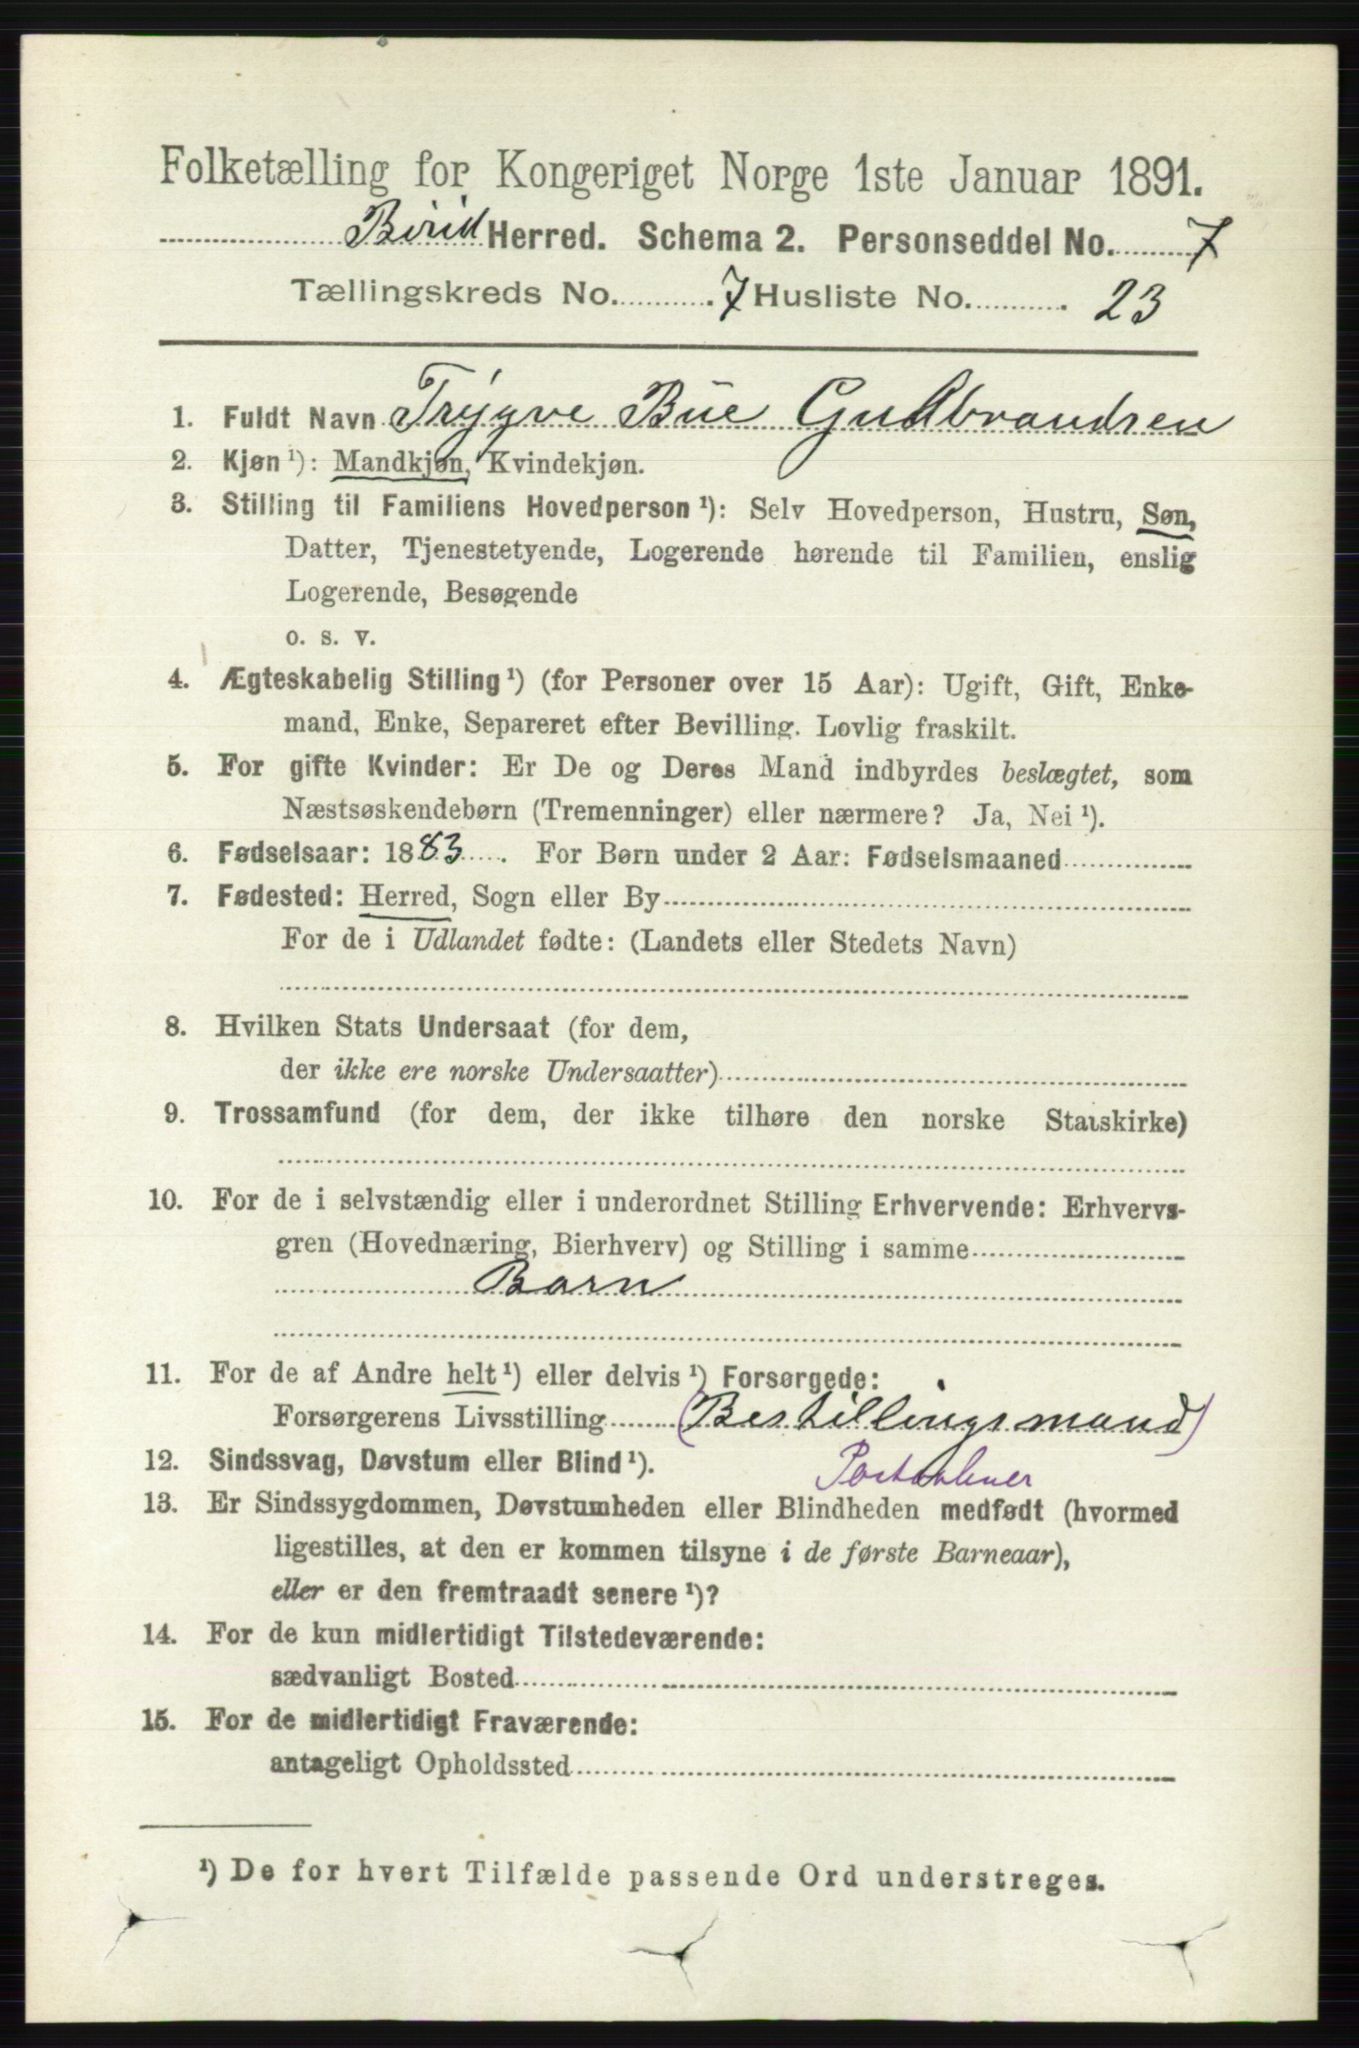 Folketælling for Kongeriget Norge 1ste Januar 1891.
Birid Herred. Schema 2. Personseddel No. 7
Tællingskreds No. 7 Husliste No. 23
1. Fuldt Navn Trygve Bue Gudbrandsen
2. Kjøn ¹): Mandkjøn, Kvindekjøn.
3. Stilling til Familiens Hovedperson ¹): Selv Hovedperson, Hustru, Søn,
Datter, Tjenestetyende, Logerende hørende til Familien, enslig
Logerende, Besøgende
o. s. v.
4. Ægteskabelig Stilling ¹) (for Personer over 15 Aar): Ugift, Gift, Enke-
mand, Enke, Separeret efter Bevilling. Lovlig fraskilt.
5. For gifte Kvinder: Er De og Deres Mand indbyrdes beslægtet, som
Næstsøskendebørn (Tremenninger) eller nærmere? Ja, Nei ¹).
6. Fødselsaar: 1883. For Børn under 2 Aar: Fødselsmaaned
7. Fødested: Herred, Sogn eller By
For de i Udlandet fødte: (Landets eller Stedets Navn)
8. Hvilken Stats Undersaat (for dem,
der ikke ere norske Undersaatter)
9. Trossamfund (for dem, der ikke tilhøre den norske Statskirke)
10. For de i selvstændig eller i underordnet Stilling Erhvervende: Erhvervs-
gren (Hovednæring, Bierhverv) og Stilling i samme
Barn
11. For de af Andre helt ¹) eller delvis ¹) Forsørgede:
Forsørgerens Livsstilling (Bestillingsmand)
12. Sindssvag, Døvstum eller Blind ¹). Postaabner
13. Er Sindssygdommen, Døvstumheden eller Blindheden medfødt (hvormed
ligestilles, at den er kommen tilsyne i de første Barneaar),
eller er den fremtraadt senere ¹)?
14. For de kun midlertidigt Tilstedeværende:
sædvanligt Bosted
15. For de midlertidigt Fraværende:
antageligt Opholdssted
¹) De for hvert Tilfælde passende Ord understreges.